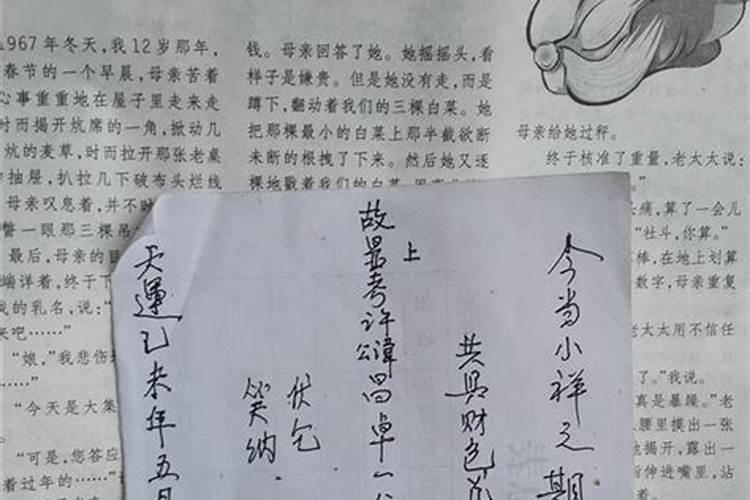 1967年冬天，我12岁那年，
春节的一个早晨，母亲苦着
心事重重地在屋子里走来走
时而揭开炕席的一角，掀动几
炕的麦草，时而拉开那张老桌
抽屉，扒拉几下破布头烂线
母亲叹息着，并不时
瞥一眼那三棵吊
最后，母亲的目
端详着，终于下
我的乳名，说：“
来吧……”
“娘，”我悲伤
……”
“今天是大集
“可是，您答应
着过年的……”
钱。母亲回答了她。她摇摇头，看
样子是嫌贵。但是她没有走，而是
蹲下，翻动着我们的三棵白菜。她
把那棵最小的白菜上那半截欲断
未断的根拽了下来。然后她又逐
棵地戳着我们的白菜，
母亲给她过秤。
终于核准了重量，老太太说：
”
头痛，算了一会儿
“社斗，你算。”
棒，在地上划算
数字，母亲重复
老太太用不信任
了。”我说。
真是暴躁。”老
腰里摸出一张
地揭开，露出一
指伸进嘴里，沾
着
今当小祥之期
共具财包
上
故显考许公讳昌卓一
伏乞
笑纳
天運己未年五月